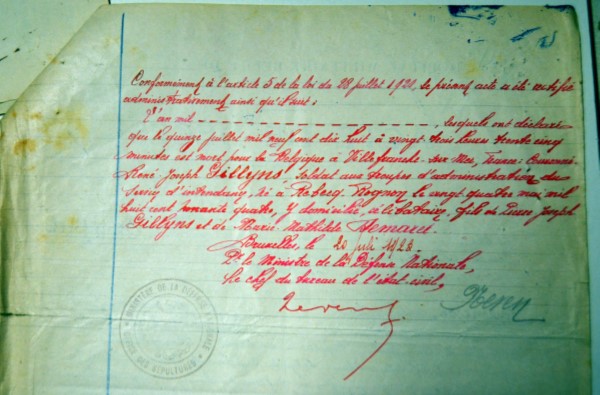 Conformément à l'article 5 de la loi du 28 juillet 1921, le présent acte a été rectifié
administrativement ainsi qu'il suit :
L'an mil - - - lesquels ont déclaré
que le quinze juillet mil neuf cent dix huit à vingt trois heures trente cinq
minutes est mort pour la Belgique à Villefranche sur Mer, France :
René Joseph Gillyns, soldat aux troupes d'administration du
service d'intendance, né à Rebecq Rognon le vingt quatre mai mil
huit cent nonante quatre, y domicilié, célibataire, fils de Pierre Joseph
Gillyns et de Marie Mathilde
Bruxelles, le 20 juli 1923.
Pr le Ministre de la Défense Nationale,
Le chef du bureau de l'état civil,
MINISTÈRE DE LA DÉFENSE NATIONALE
SÉPULTURES